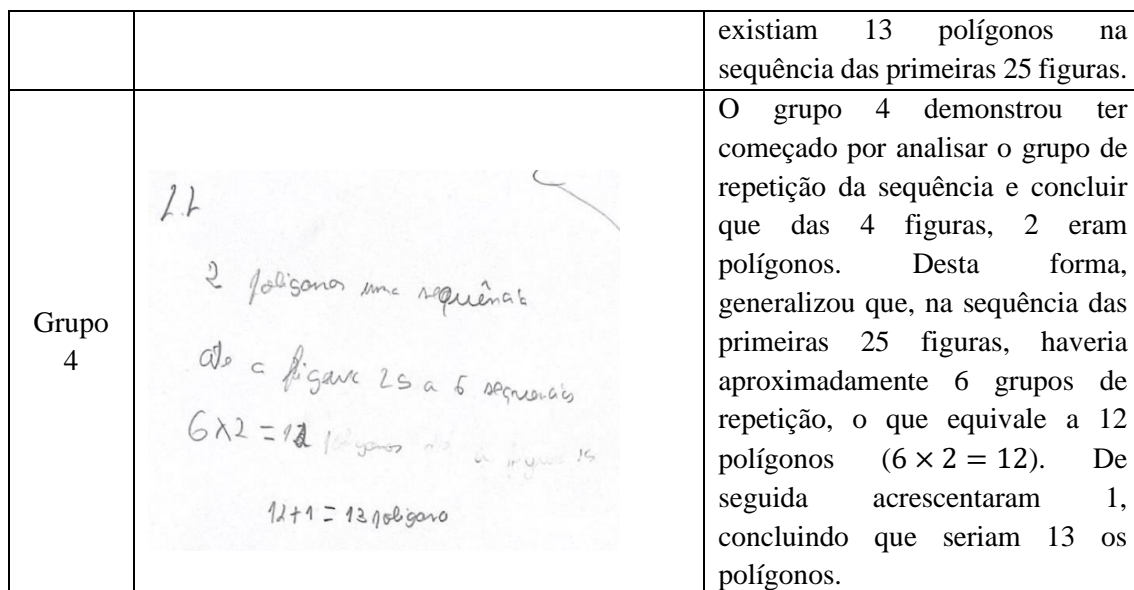 existiam 13 polígonos na
sequência das primeiras 25 figuras.
Grupo
4
2 poligonos uma sequência
ate a figura 25 a 6 sequencias
6x2=12
12+1=13 poligono
O grupo 4 demonstrou ter
começado por analisar o grupo de
repetição da sequência e concluir
que das 4 figuras, 2 eram
polígonos. Desta forma,
generalizou que, na sequência das
primeiras 25 figuras, haveria
aproximadamente 6 grupos de
repetição, o que equivale a 12
polígonos (6 × 2 = 12). De
seguida acrescentaram 1,
concluindo que seriam 13 os
polígonos.